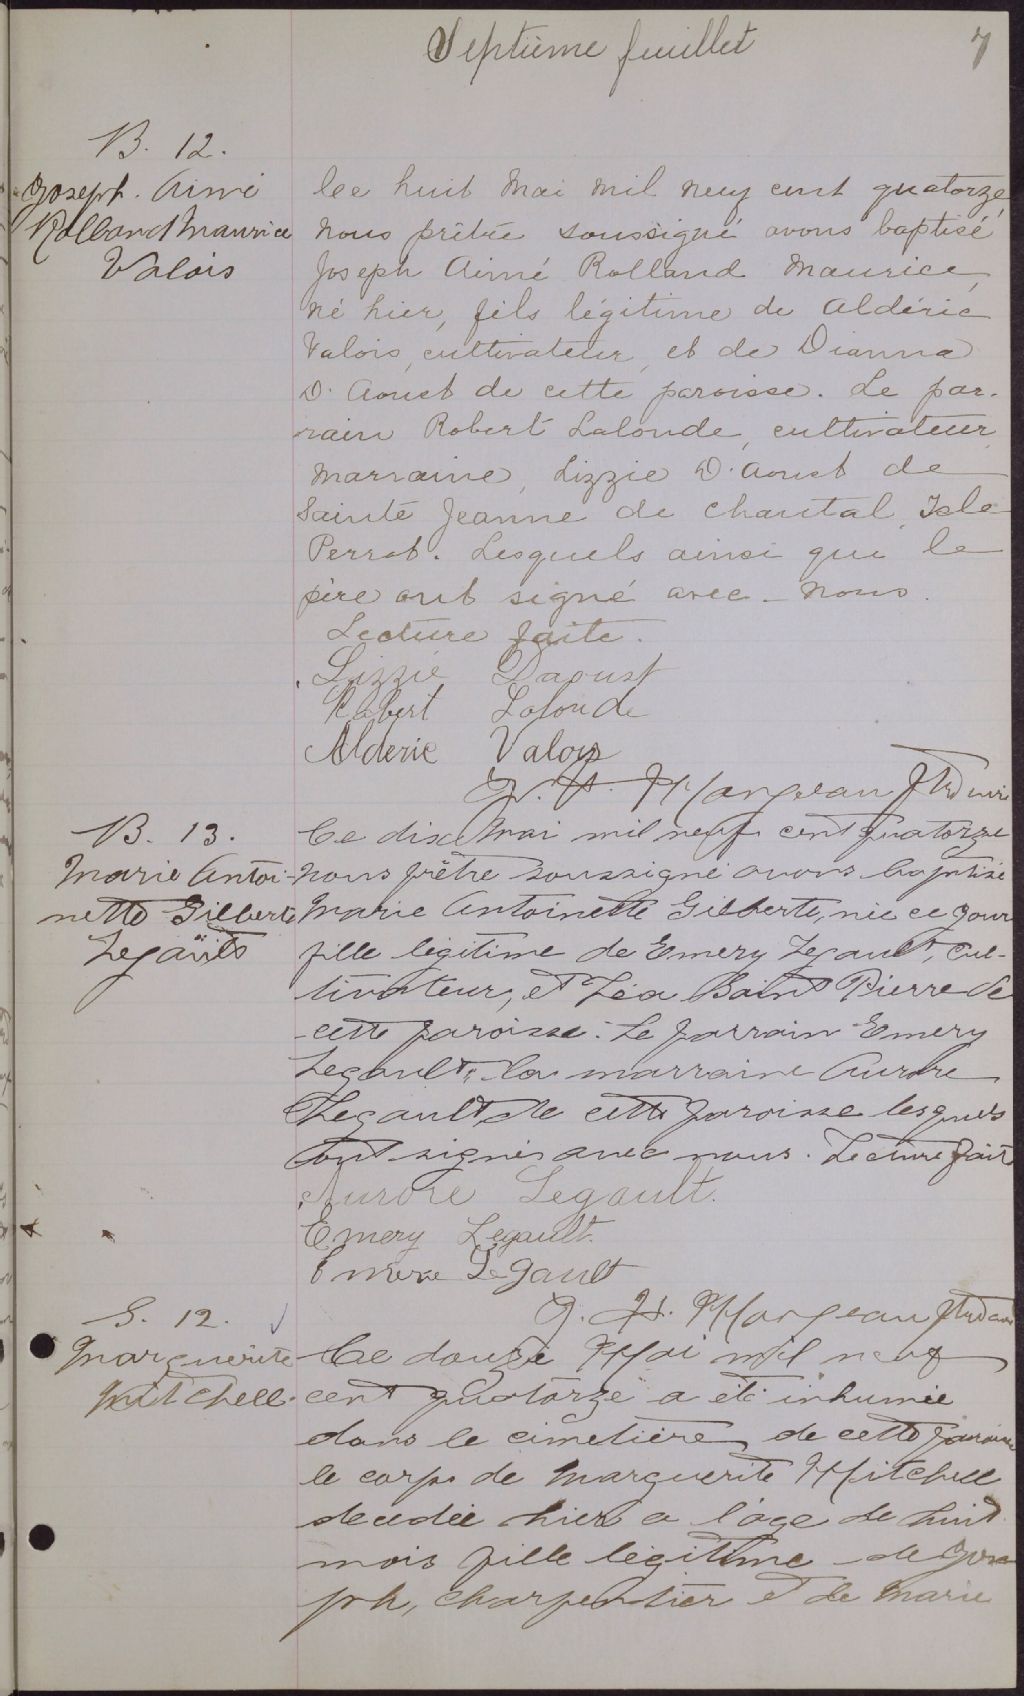 Septième feuillet 7
B. 12.
Joseph. Aimé
Rolland Maurice
Valois
Ce huit Mai mil neuf cent quatorze
nous prêtre soussigné avons baptisé
Joseph Aimé Rolland Maurice,
né hier, fils légitime de Aldéric
Valois, cultivateur, et de Dianna
D'Aoust de cette paroisse. Le par-
rain Robert Lalonde, cultivateur,
marraine, Lizzie D'Aoust de
Sainte Jeanne de Chantal, Isle
Perrot. Lesquels ainsi que le
père ont signé avec nous.
Lecture faite.
Lizzie Daoust
Robert Lalonde
Alderic Valois
Morgeau Ptre
B. 13.
Marie Antoi-
nette Gilberte
Legault
Ce dix Mai mil neuf cent quatorze
nous prêtre soussigné avons baptisé
Marie Antoinette Gilberte, née ce jour
fille légitime de Emery Legault, cul-
tivateur, et Léa Saint Pierre de
cette paroisse. Le parrain Emery
Legault, la marraine Aurore
Legault de cette paroisse lesquels
ont signés avec nous. Lecture fait
Aurore Legault.
Emery Legault.
Legault
Morgeau Ptre
S. 12.
Marguerite
Mitchell.
Ce douze Mai mil neuf
cent quatorze a été inhumée
dans le cimetière de cette paroisse
le corps de Marguerite Mitchell
decedée hier a l'age de huit
mois fille légitime de Jose
ph, charpentier et de Marie